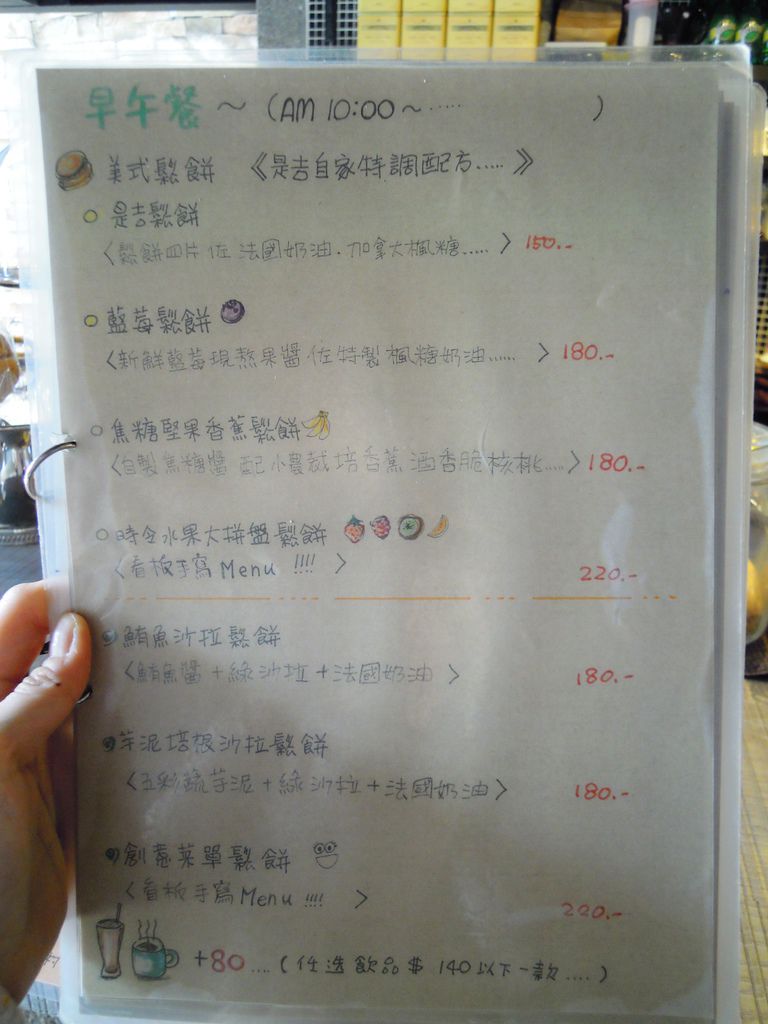 早午餐～（AM 10:00～……）
美式鬆餅 《是吉自家特調配方.....》
是吉鬆餅
〈鬆餅四片佐法國奶油.加拿大楓糖.....〉150.-
藍莓鬆餅
〈新鮮藍莓現熬果醬佐特製楓糖奶油......〉180.-
焦糖堅果香蕉鬆餅
〈自製焦糖醬配小農栽培香蕉洒香脆核桃.....〉180.-
時令水果大拼盤鬆餅
〈看板手寫Menu !!!!〉220.-
鮪魚沙拉鬆餅
〈鮪魚醬+綠沙拉+法國奶油〉180.-
芋泥培根沙拉鬆餅
〈五彩蔬芋泥+綠沙拉+法國奶油〉180.-
創意菜單鬆餅
〈看板手寫Menu !!!!〉220.-
+80....（任選飲品$140以下一款....）